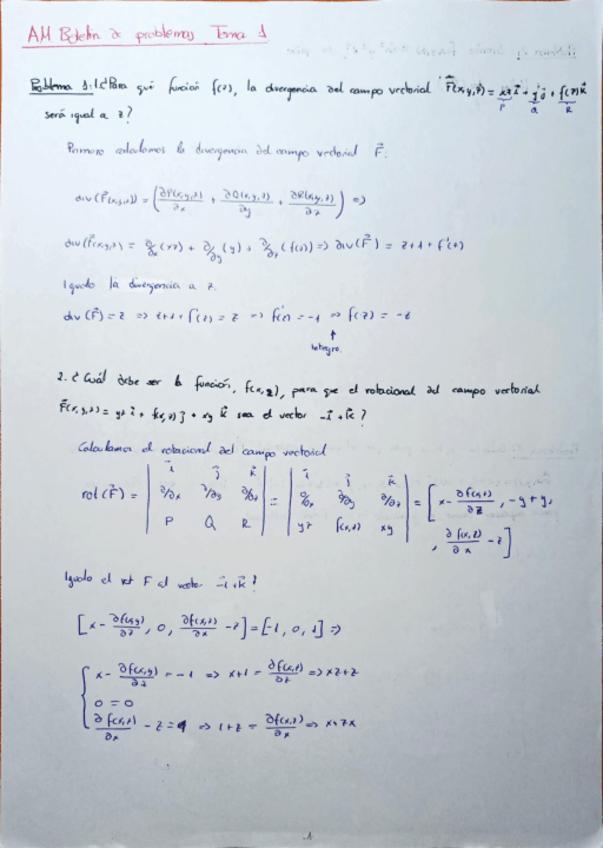 AM Boletín de problemas Tema 1
Problema 1: 1.¿Para qué función f(z), la divergencia del campo vectorial F⃗(x,y,z) = xz i⃗ + y j⃗ + f(z) k⃗
P Q R
será igual a z?
Primero calculamos la divergencia del campo vectorial F⃗.
div(F⃗(x,y,z)) = (∂P(x,y,z)/∂x + ∂Q(x,y,z)/∂y + ∂R(x,y,z)/∂z) =>
div(F⃗(x,y,z) = ∂/∂x (xz) + ∂/∂y (y) + ∂/∂z (f(z)) => div(F⃗) = z+1+f'(z)
Igualo la divergencia a z.
div(F⃗) = z => z+1+f'(z) = z => f'(z) = -1 => f(z) = -z
↑
integro.
2. ¿Cuál debe ser la función, f(x,z), para que el rotacional del campo vectorial
F⃗(x,y,z) = yz i⃗ + f(x,z) j⃗ + xy k⃗ sea el vector -i⃗ + k⃗?
Calculamos el rotacional del campo vectorial
rot(F⃗) = | i⃗ j⃗ k⃗ | = | i⃗ j⃗ k⃗ | = [x - ∂f(x,z)/∂z, -y+y,
| ∂/∂x ∂/∂y ∂/∂z | | ∂/∂x ∂/∂y ∂/∂z |
| P Q R | | yz f(x,z) xy | , ∂f(x,z)/∂x - z]
Igualo el rot F al vector -i⃗+k⃗:
[x - ∂f(x,y)/∂z, 0, ∂f(x,z)/∂x - z] = [-1, 0, 1] =>
x - ∂f(x,y)/∂z = -1 => x+1 = ∂f(x,z)/∂z => xz+z
0 = 0
∂f(x,z)/∂x - z = 1 => 1+z = ∂f(x,z)/∂x => x+zx
1